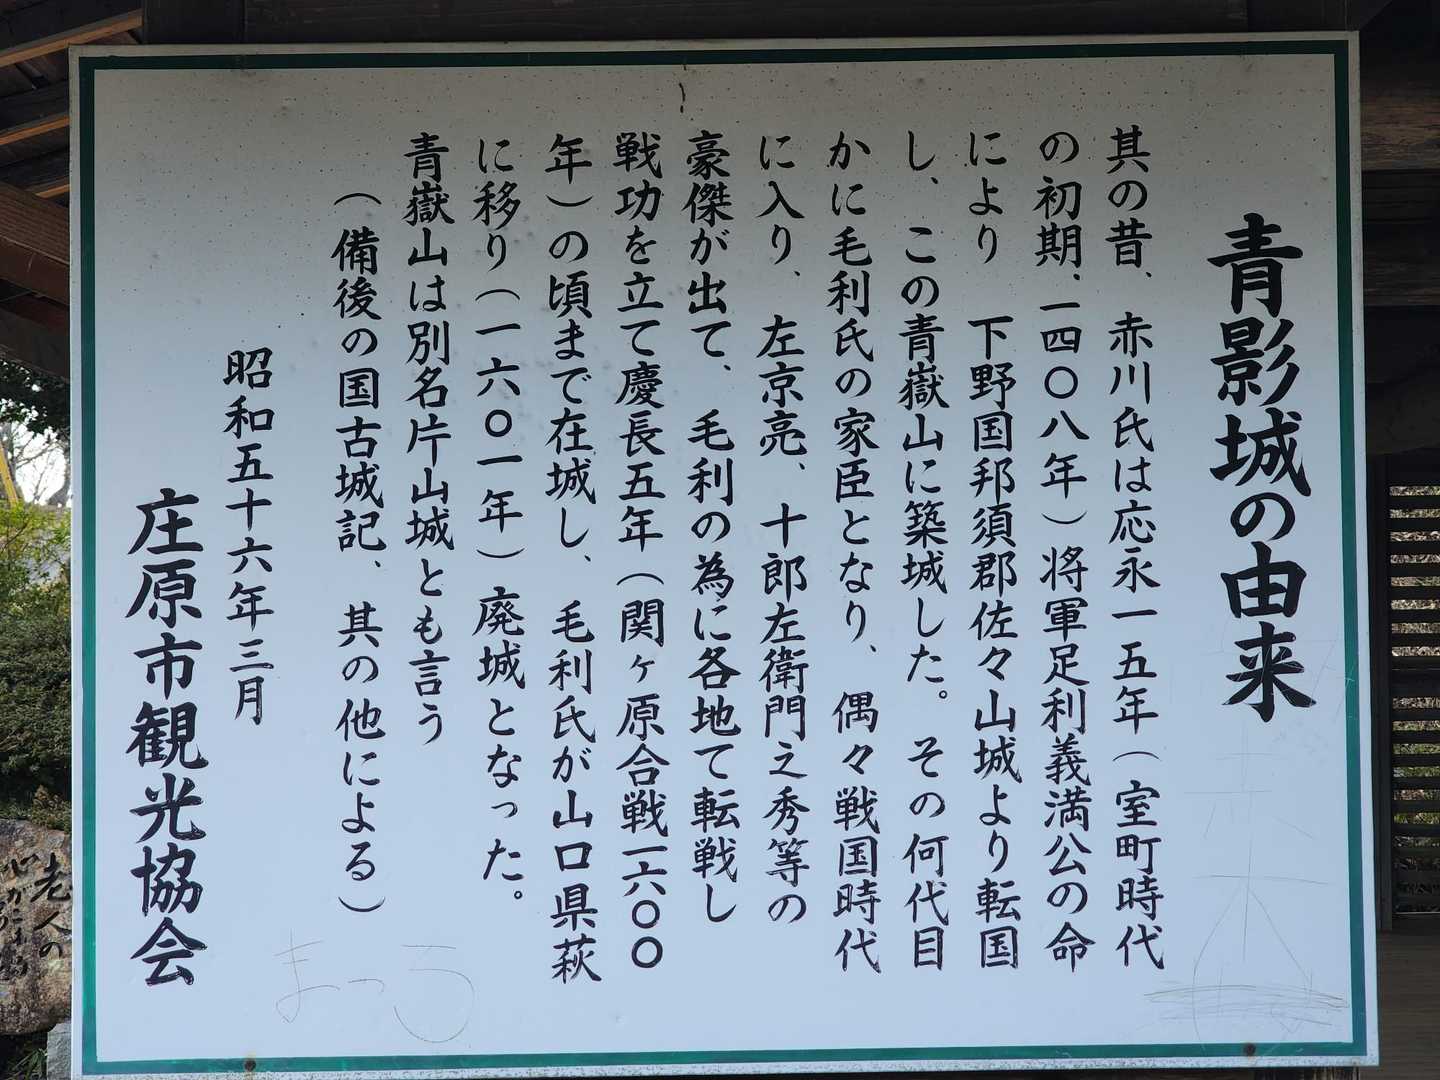 青影城の由来
其の昔、赤川氏は応永一五年(室町時代
の初期、一四〇八年)将軍足利義満公の命
により 下野国邦須郡佐々山城より転国
し、この青嶽山に築城した。その何代目
かに毛利氏の家臣となり、偶々戦国時代
に入り、左京亮、十郎左衛門之秀等の
豪傑が出て、毛利の為に各地て転戦し
戦功を立て慶長五年(関ヶ原合戦一六〇〇
年)の頃まで在城し、毛利氏が山口県萩
に移り(一六〇一年)廃城となった。
青嶽山は別名片山城とも言う
(備後の国古城記、其の他による)
昭和五十六年三月
庄原市観光協会
まつろ
老人の